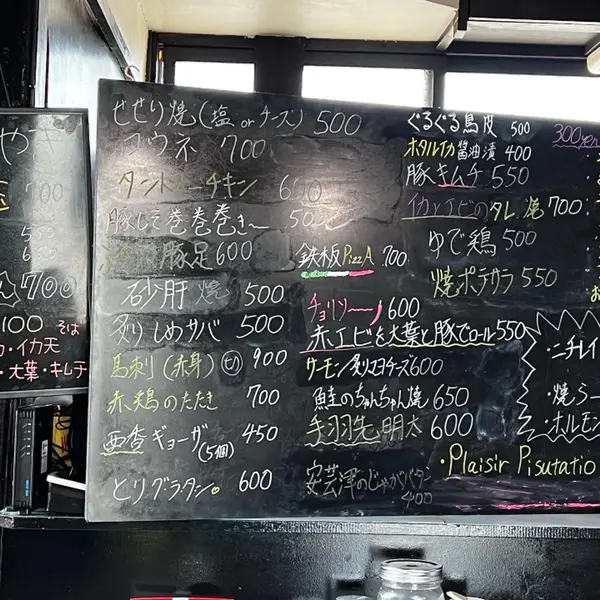 せせり焼(塩 or チーズ) 500
コウネ 700
チキン 600
豚しそ巻巻巻き〜 500
豚足 600
砂肝焼 500
炙りしめサバ 500
馬刺(赤身) 900
赤鶏のたたき 700
ギョーザ(5個) 450
とりグラタン。 600
鉄板PizzA 700
チョリソ〜 600
赤エビを大葉と豚でロール 550
サーモン炙りマヨチーズ 600
鮭のちゃんちゃん焼 650
手羽先明太 600
安芸津のじゃがバター
400
ぐるぐる鳥皮 500
ホタルイカ醤油漬 400
豚キムチ 550
イカとエビのタレ焼 700
ゆで鶏 500
焼ポテサラ 550
・ニチレイ
・焼うー
・ホルモン
・Plaisir Pisutatio
やき
700
700
100 そば
・イカ天
・大葉・キムチ